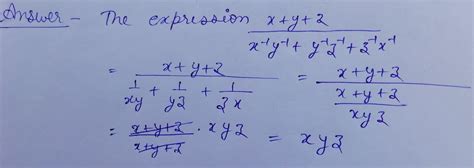 Answer - The expression (x+y+z)/(x⁻¹y⁻¹ + y⁻¹z⁻¹ + z⁻¹x⁻¹)
= (x+y+z)/(1/xy + 1/yz + 1/zx) = (x+y+z)/((x+y+z)/xyz)
= (x+y+z)/(x+y+z) · xyz = xyz